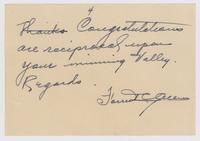 4
Thanks Congratulations
are reciprocal upon
your winning Valley.
Regards.
Forrest C.